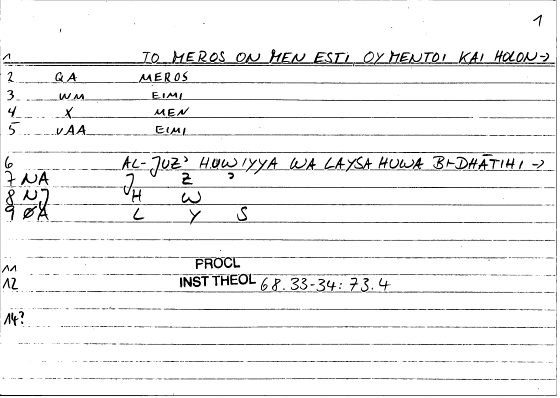 1
1 TO MEROS ON MEN ESTI OY MENTOI KAI HOLON→
2 QA MEROS
3 WM EIMI
4 X MEN
5 VAA EIMI
6 AL-JUZ' HUWIYYA WA LAYSA HUWA BI-DHĀTIHI →
7 NA J Z '
8 NJ H W
9 ØA L Y S
11 PROCL
12 INST THEOL 68.33-34: 73.4
14?